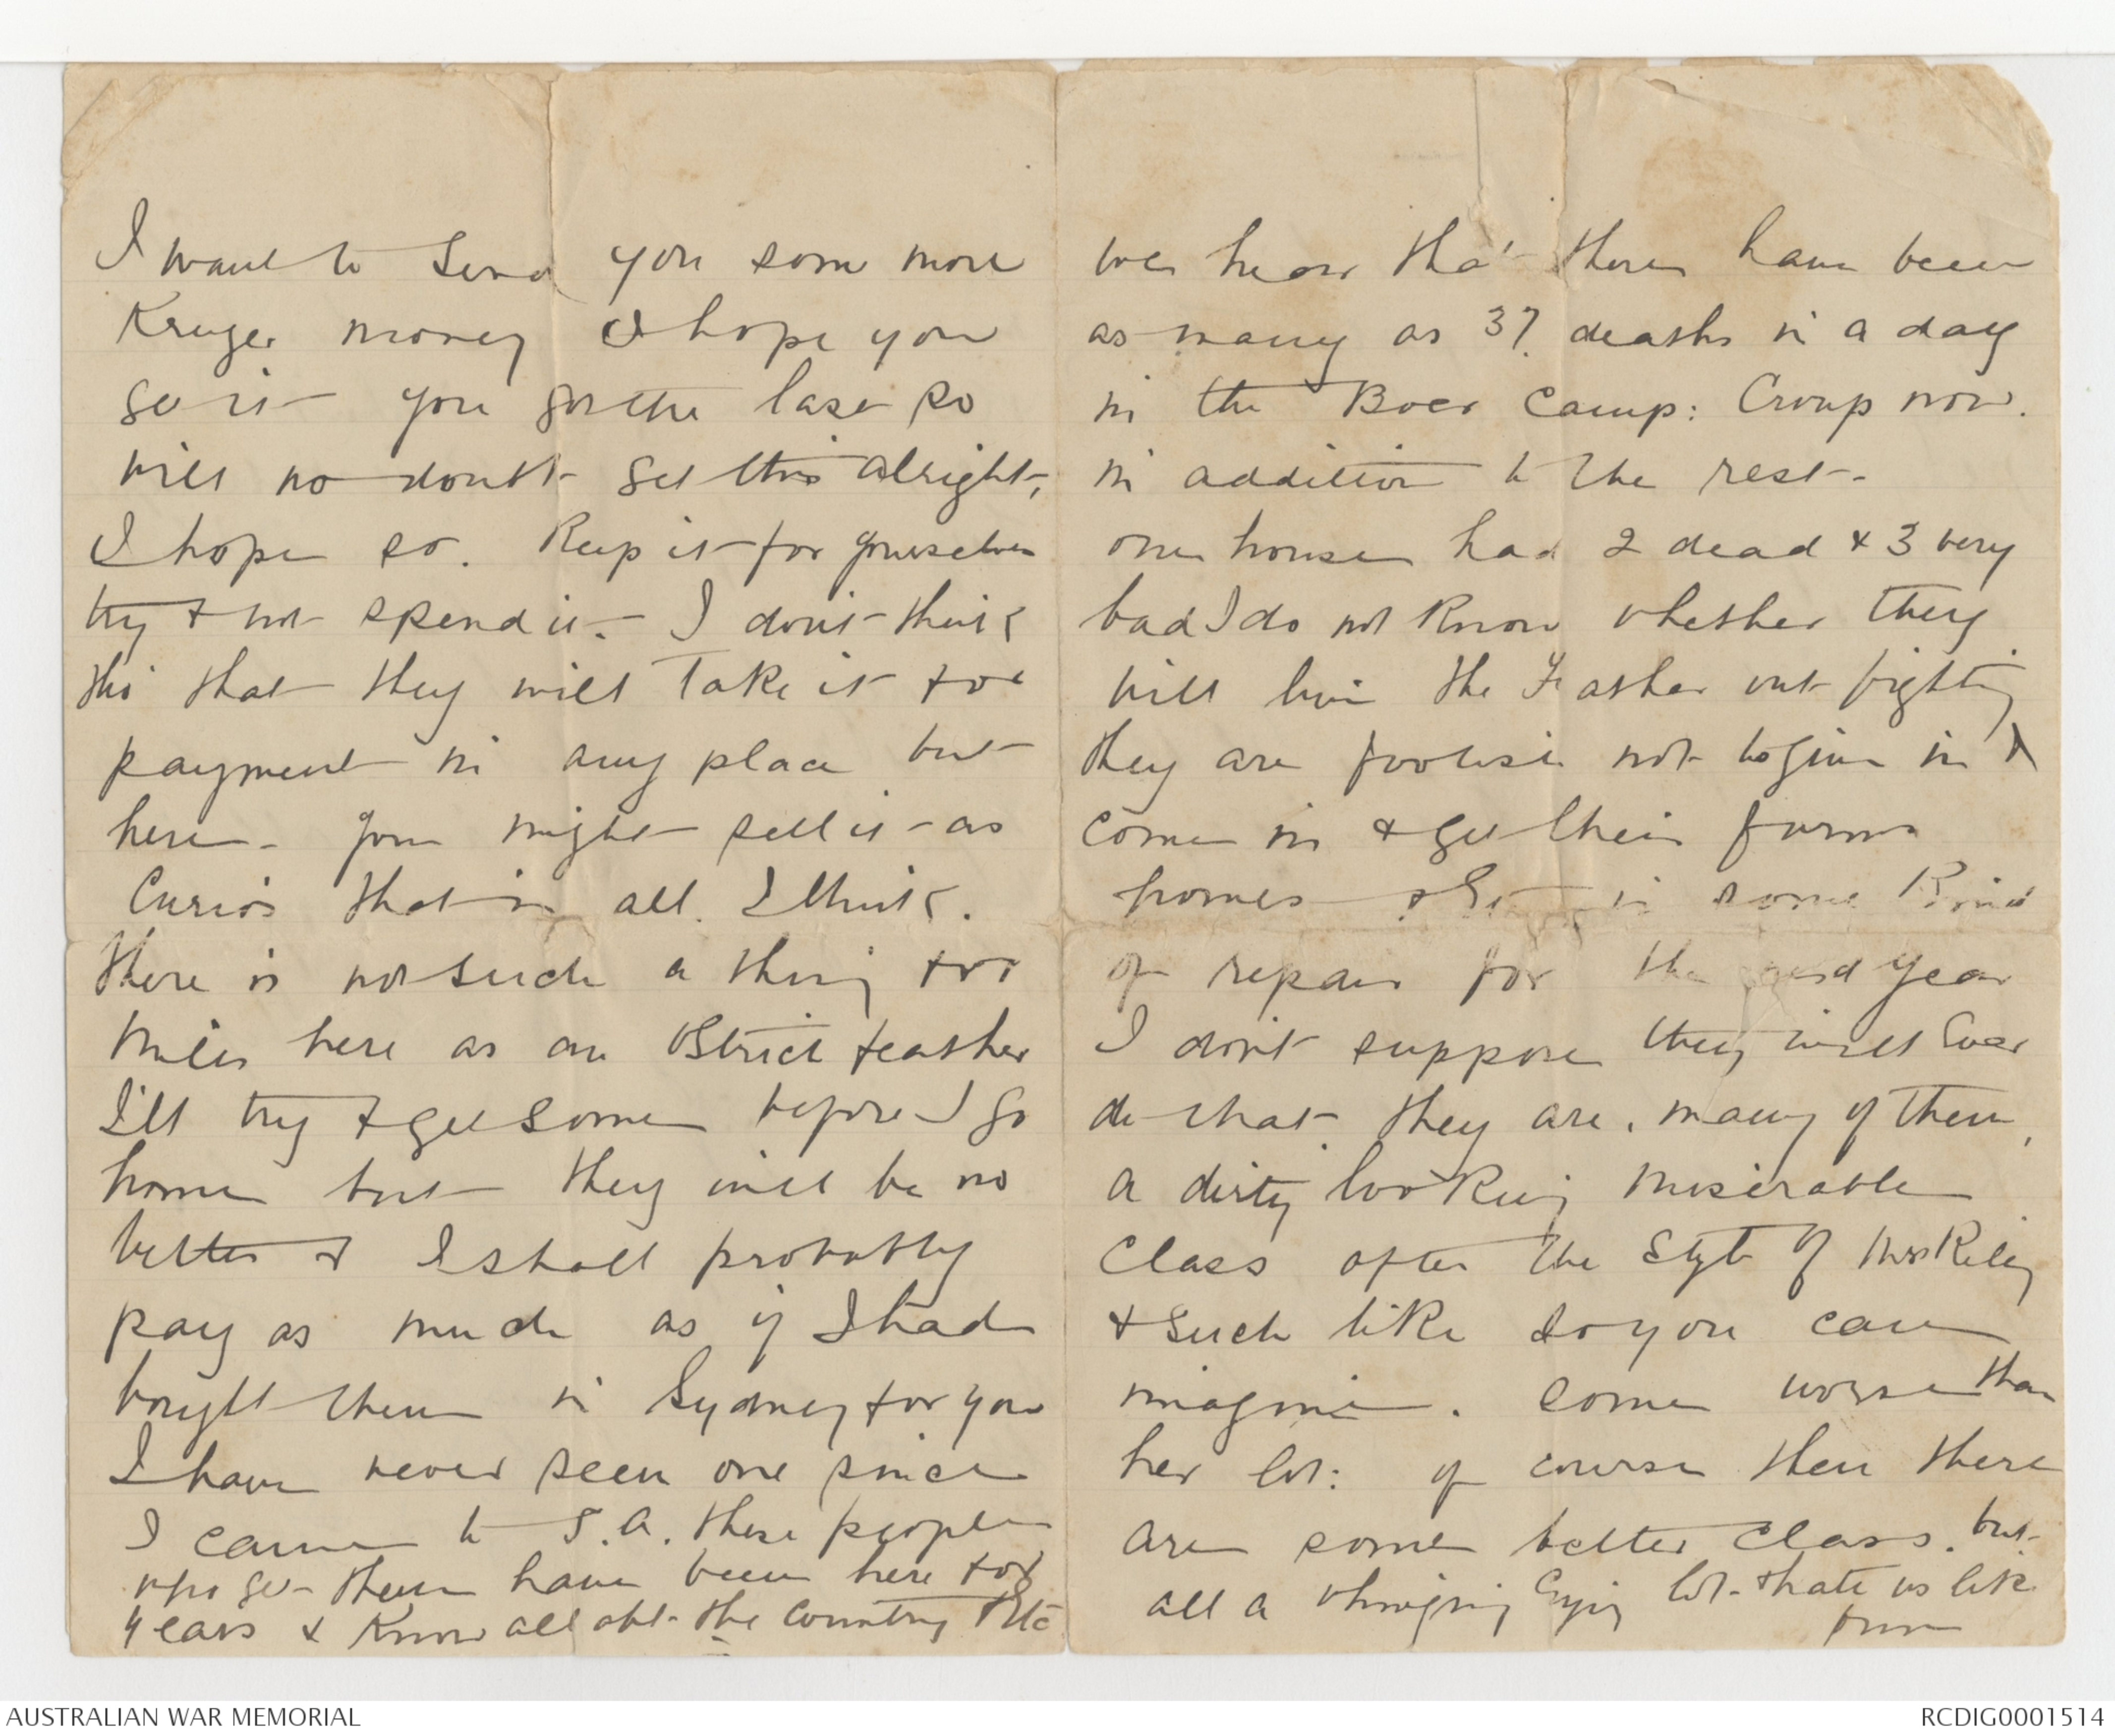 I want to send you some more
Kruger money I hope you
get it you got the last so
will no doubt get this alright,
I hope so. Keep it for yourselves
try & not spend it. I don't think
tho' that they will take it for
payment in any place but
here. You might sell it as
Curios that is all I think.
There is not such a thing for
miles here as an Ostrich feather
I'll try & get some before I go
home but they will be no
better & I shall probably
pay as much as if I had
bought them in Sydney for you
I have never seen one since
I came to S.A. these people
who get them have been here for
years & know all abt the country Etc
we hear that there have been
as many as 37 deaths in a day
in the Boer Camp: Croup now.
in addition to the rest.
one house had 2 dead & 3 very
bad I do not know whether they
will live the Father out fighting
they are foolish not to give in &
come in & get their farms
homes & in some kind
of repair for the year
I don't suppose they will Ever
do that. they are, many of them,
a dirty looking miserable
Class after the style of Mrs Riley
& such like so you can
imagine. Some worse than
her lot: of course then there
are some better Class. but
all a whinging Crying lot & hate us like